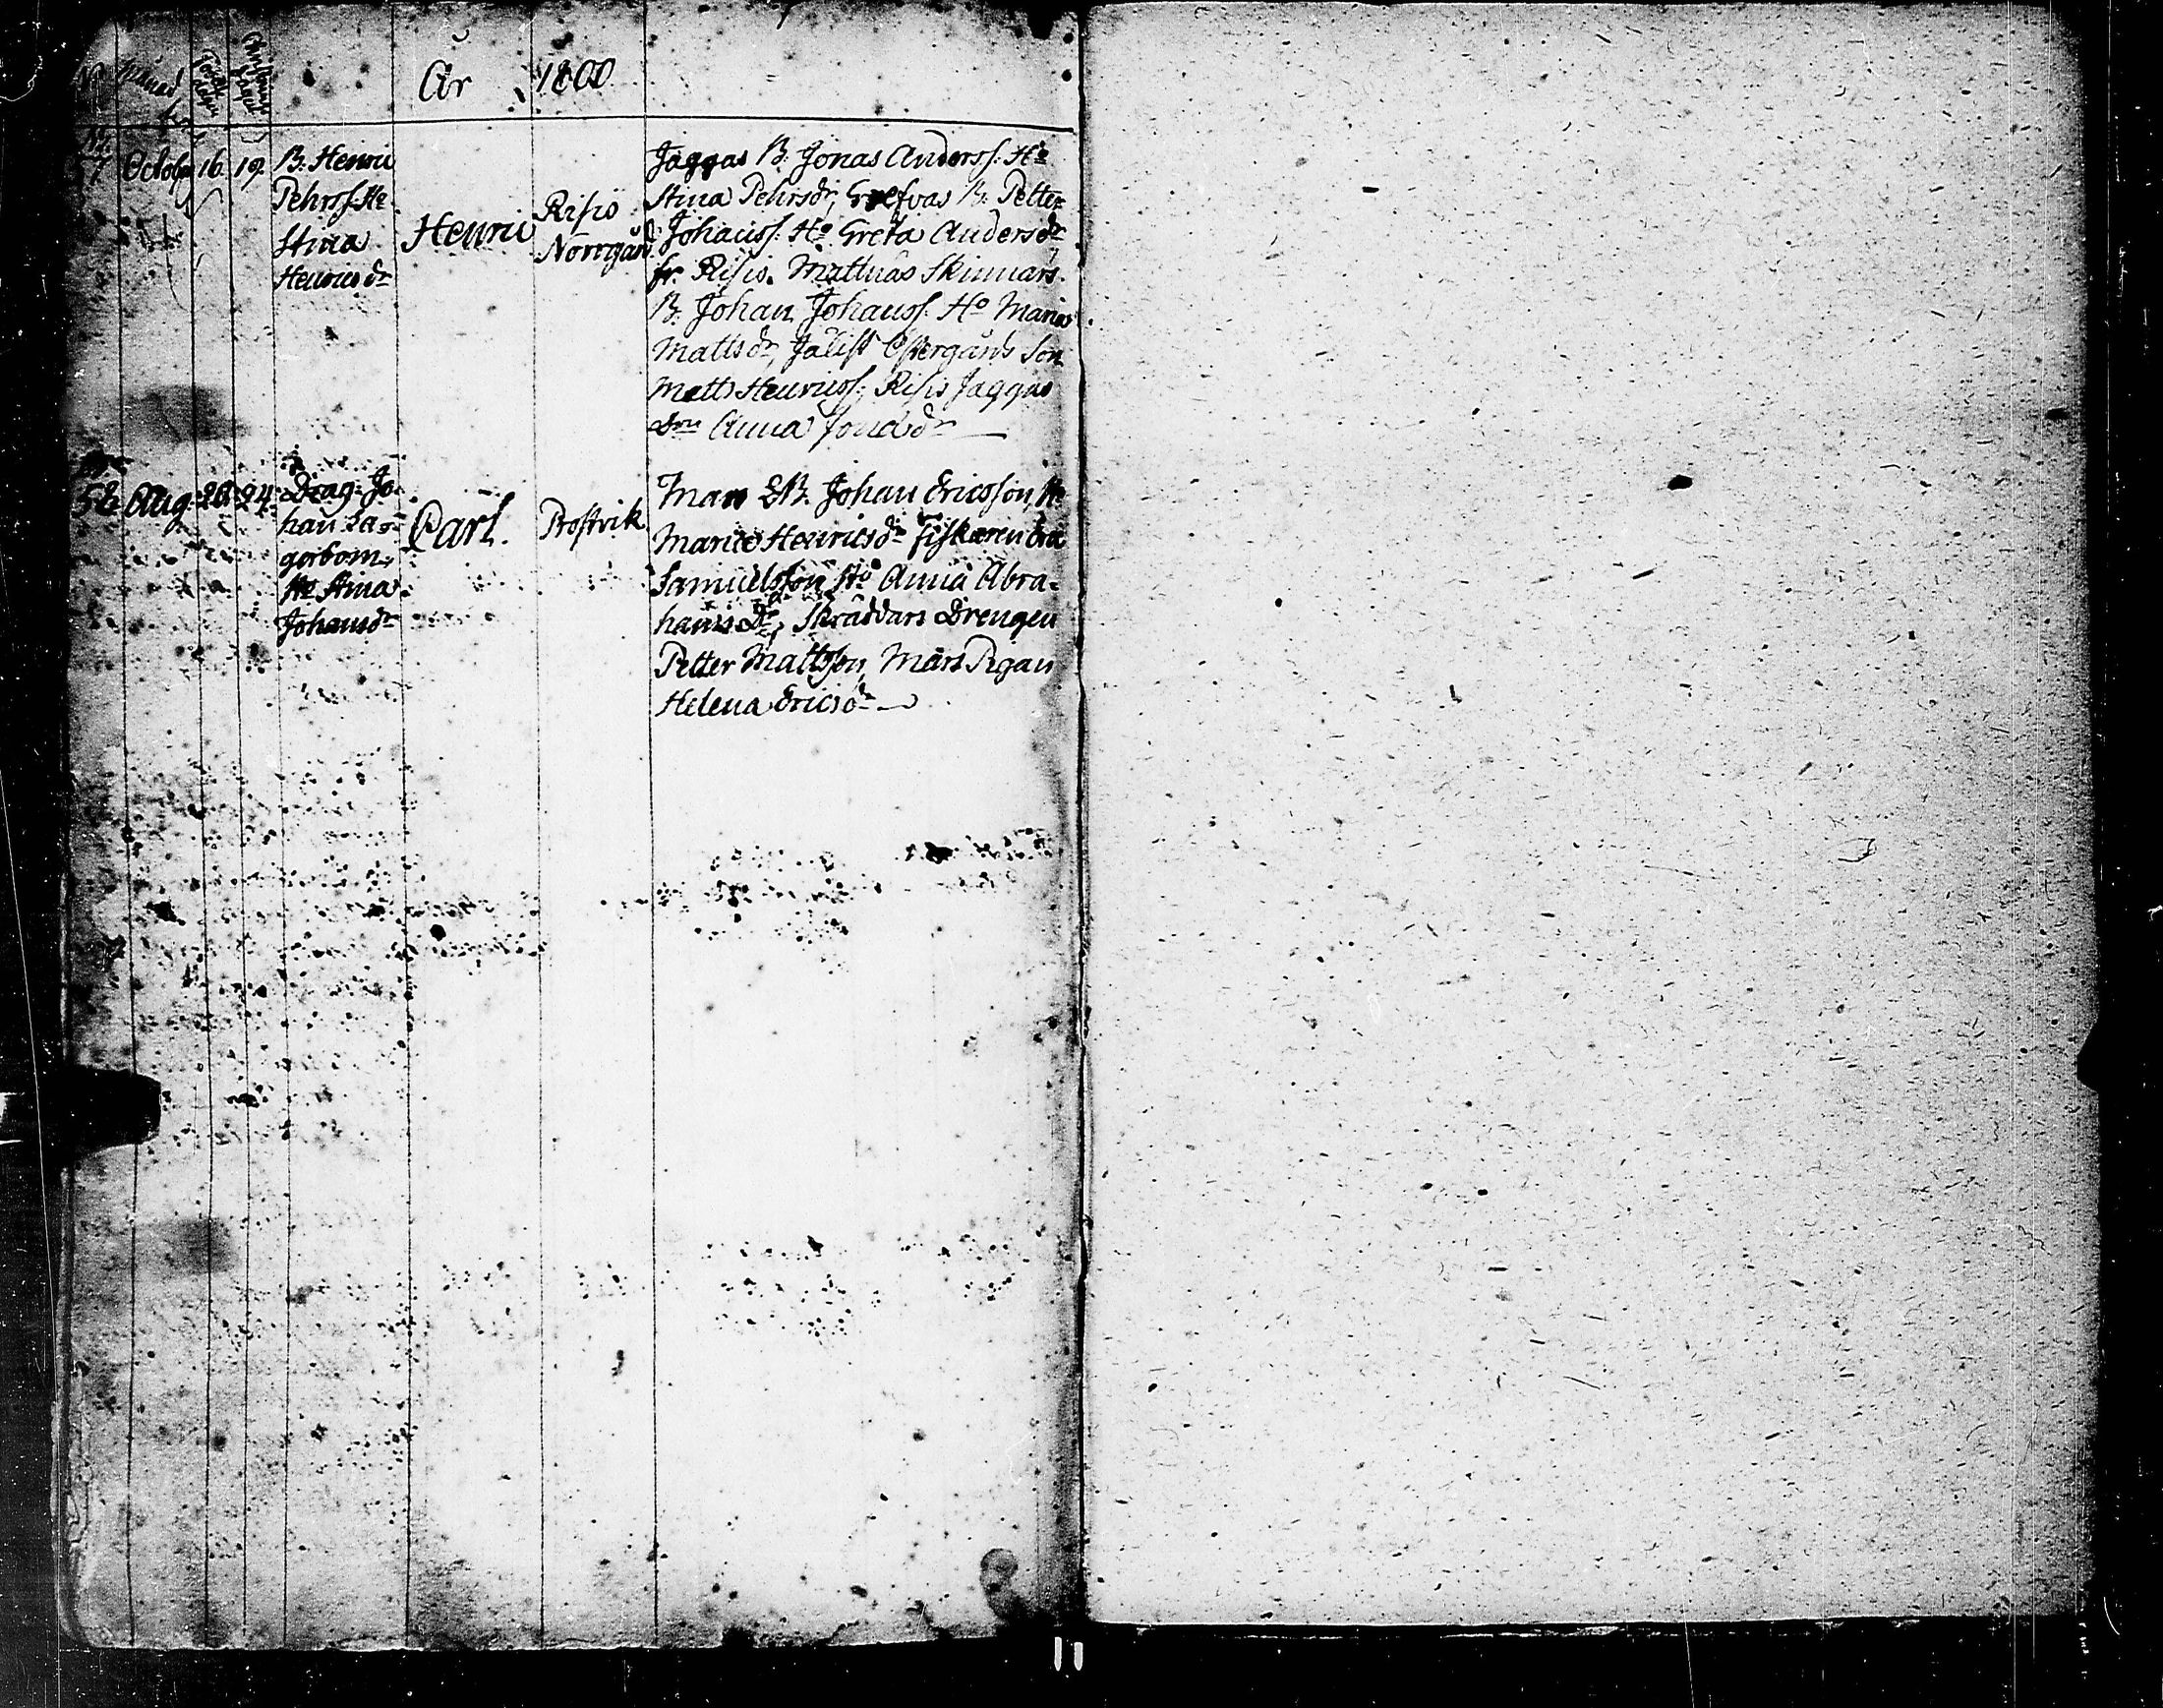 No Månad Födelse dagen Christnings dagen
År 1800
No
57 October 16. 19. B. Henric
Pehrss. Ho
Stina
Henricsdr
Henric
Risiö
Norrgård
Jaggas B. Jonas Anderss. Ho
Stina Pehrsdr, Grefvas B. Petter
Johanss. Ho Greta Andersdr
fr. Risiö. Mattnäs Skinnars
B. Johan Johanss. Ho Maria
Mattsdr, Jälist Östergårds Son
Matts Henricss; Risiö Jaggas
Anna Jonædr
58 Aug. 23 24. Drag. Jo-
han La-
gerbom,
Ho Stina
Johansdr
Carl.
Prostvik
Mars B. Johan Ericsson, Ho
Maria Henricsdr Fiskaren
Samuelsson Ho Anna Abra-
hamsdr, Skräddars Drengen
Petter Mattsson, Mårs Pigan
Helena Ericsdr
11